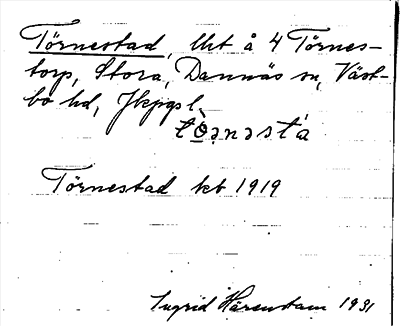 Törnestad, lht å 4 Törnes-
torp, Stora, Dannäs sn, Väst-
bo hd, Jkpgs l.
tö̀ṇnəstá
Törnestad kbt 1919
Ingrid Härenstam 1931